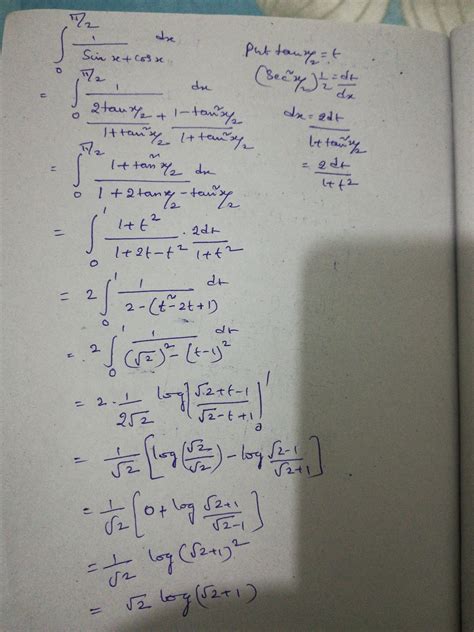 ∫₀^(π/2) 1/(Sin x + cos x) dx
Put tan x/2 = t
(Sec² x/2) 1/2 = dt/dx
= ∫₀^(π/2) 1/((2tan x/2)/(1+tan² x/2) + (1-tan² x/2)/(1+tan² x/2)) dx
dx = 2dt/(1+tan² x/2)
= 2dt/(1+t²)
= ∫₀^(π/2) (1+tan² x/2)/(1+2tan x/2 - tan² x/2) dx
= ∫₀¹ (1+t²)/(1+2t-t²) · 2dt/(1+t²)
= 2∫₀¹ 1/(2-(t²-2t+1)) dt
= 2∫₀¹ 1/((√2)²-(t-1)²) dt
= 2·1/(2√2) log[(√2+t-1)/(√2-t+1)]₀¹
= 1/√2 [log(√2/√2) - log (√2-1)/(√2+1)]
= 1/√2 [0 + log (√2+1)/(√2-1)]
= 1/√2 log(√2+1)²
= √2 log(√2+1)